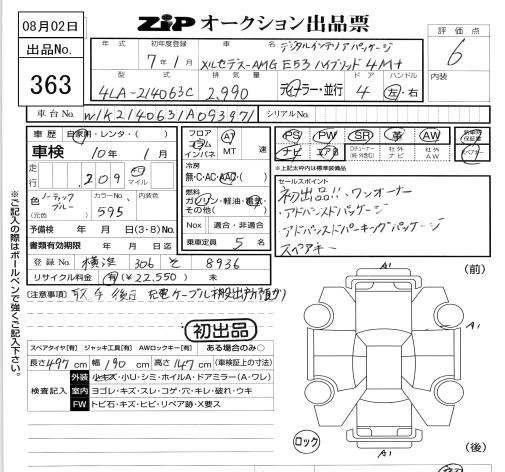 08月02日
ZiP オークション出品票
出品No.
363
評価点
6
内装
年式 初年度登録 車名 デジタルインテリアパッケージ
7年1月 メルセデス-AMG E53 ハイブリッド 4M+
型式 排気量 ドア ハンドル
4LA-214063C 2,990 ディーラー・並行 4 左・右
車台No. W1K2140631A093971 シリアルNo.
車歴 自家用・レンタ・( )
車検 10年1月
走行 209 キロ マイル
色 ノーティックブルー (元色) カラーNo. 595 内装色
予備検 年 月 日(3・8)No.
書類有効期限 年 月 日迄
登録No. 横浜 306 そ 8936
リサイクル料金 有(¥22,550) 未
フロア コラム インパネ AT MT 速
冷房 無・C・AC・AAC・( )
燃料 ガソリン・軽油・電気・その他( )
Nox 適合・非適合
乗車定員 5名
PS PW SR 革 AW
ナビ エアB Dチューナー 社外ナビ 社外AW
新車時保証書
スペアキー
*上記太枠内は標準装備品
セールスポイント
初出品!! ワンオーナー
・アドバンスドパッケージ
・アドバンスドパーキングパッケージ
スペアキー
(注意事項)
初出品
スペアタイヤ[有] ジャッキ工具[有] AWロックキー[有] ある場合のみ○
長さ497cm 幅190cm 高さ147cm (車検証上の寸法)
検査記入
外装 小キズ・小リ・シミ・ホイルA・ドアミラー(A・ワレ)
室内 ヨゴレ・キズ・スレ・コゲ・穴・キレ・破れ・ウキ
FW トビ石・キズ・ヒビ・リペア跡・X要ス
※ご記入の際はボールペンで強くご記入下さい。
(前)
A1
A1
A1
ロック
(後)